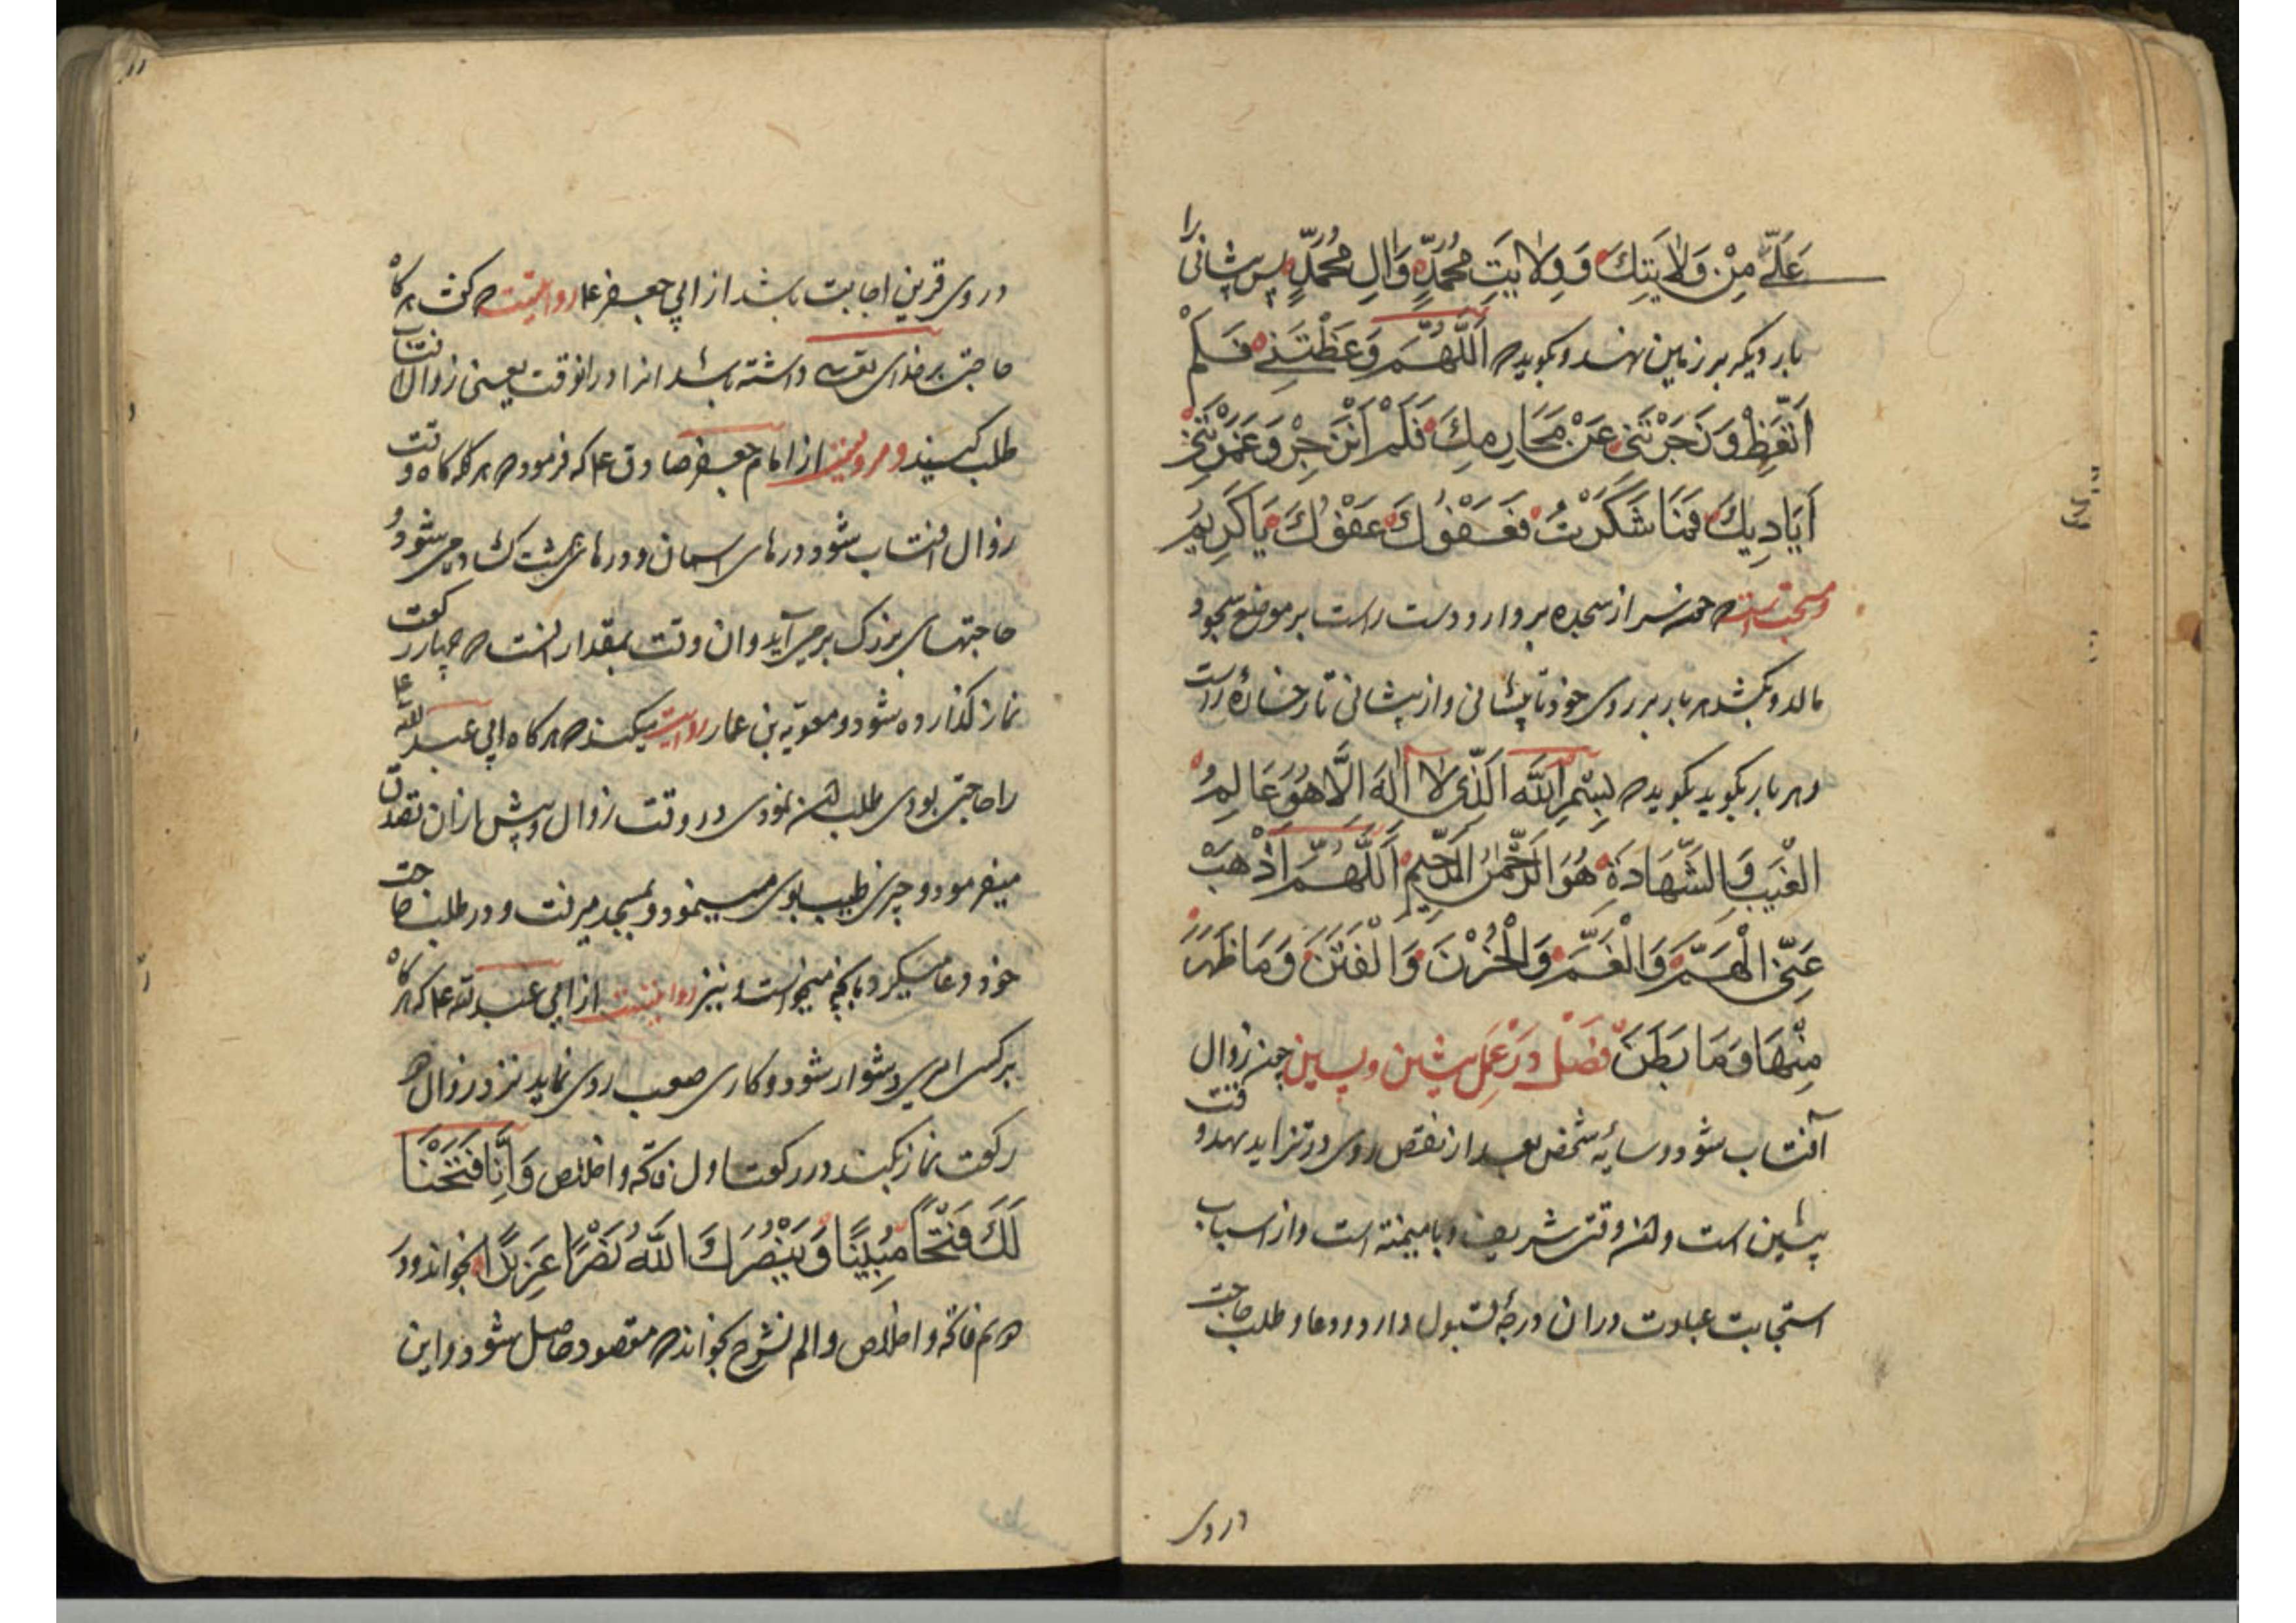 عَلَیَّ مِنْ وَلَایَتِكَ وَ وِلَایَتِ مُحَمَّدٍ وَآلِ مُحَمَّدٍ پس پیشانی را
بار دیکر بر زمین نهد و بکوید که اَللّٰهُمَّ وَعَظْتَنِی فَلَمْ
اَتَّعِظْ وَ زَجَرْتَنِی عَنْ مَحَارِمِكَ فَلَمْ اَنْزَجِرْ وَ غَمَرْتَنِی
اَیَادِیكَ فَمَا شَكَرْتُ فَعَفْوُكَ عَفْوُكَ یَا كَرِیمُ
و مستحبست که چون سر از سجده بردارد دست راست بر موضع سجود
مالد و بکشد هر بار بر روی خود تا پیشانی و از پیشانی تا رخسارهٔ راست
و هر بار بکوید بکوید که بِسْمِ اللّٰهِ الَّذِی لَا اِلٰهَ اِلَّا هُوَ عَالِمُ
الْغَیْبِ وَالشَّهَادَةِ هُوَ الرَّحْمٰنُ الرَّحِیمُ اَللّٰهُمَّ اَذْهِبْ
عَنِّی الْهَمَّ وَالْغَمَّ وَالْحُزْنَ وَالْفِتَنَ وَمَا ظَهَرَ
مِنْهَا وَمَا بَطَنَ فصل در عمل پیشین و پسین چون زوال
آفتاب شود و سایهٔ شخص بعد از نقص روی در تزاید نهد وقت
پیشین است و این وقتی شریف و با میمنه است و از اسباب
استجابت عبادت در ان درجهٔ قبول دارد و دعا و طلب حاجت
در وی
در وی قرین اجابت باشد از ابی جعفر ع روایتست که کفت هر کاه
حاجتی بر خدای تعالی داشته باشد انرا در انوقت یعنی زوال افتاب
طلب کنید و مرویست از امام جعفر صادق ع که فرمود که هر کاه وقت
زوال افتاب شود درهای اسمان و درهای بهشت کشاده می شود و
حاجتهای بزرک برمی آید و ان وقت بمقدار انست که چهار رکعت
نماز کذارده شود و معویة بن عمار روایت میکند که هر کاه ابی عبد الله ع
را حاجتی بودی طلب ان نمودی در وقت زوال و پیش از ان تصدق
میفرمود و چیزی طیب بوی مینمود و بمسجد میرفت و در طلب حاجت
خود دعا میکرد بانچه میخواست و نیز روایتست از ابی عبد الله ع که هر کاه
بر کسی امری دشوار شود و کاری صعب روی نماید نزد زوال دو
رکعت نماز بکند در رکعت اول فاتحه و اخلاص وَ اِنَّا فَتَحْنَا
لَكَ فَتْحًا مُبِینًا وَ یَنْصُرَكَ اللّٰهُ نَصْرًا عَزِیزًا بخواند و در
دویم فاتحه و اخلاص و الم نشرح بخواند که مقصود حاصل شود و این